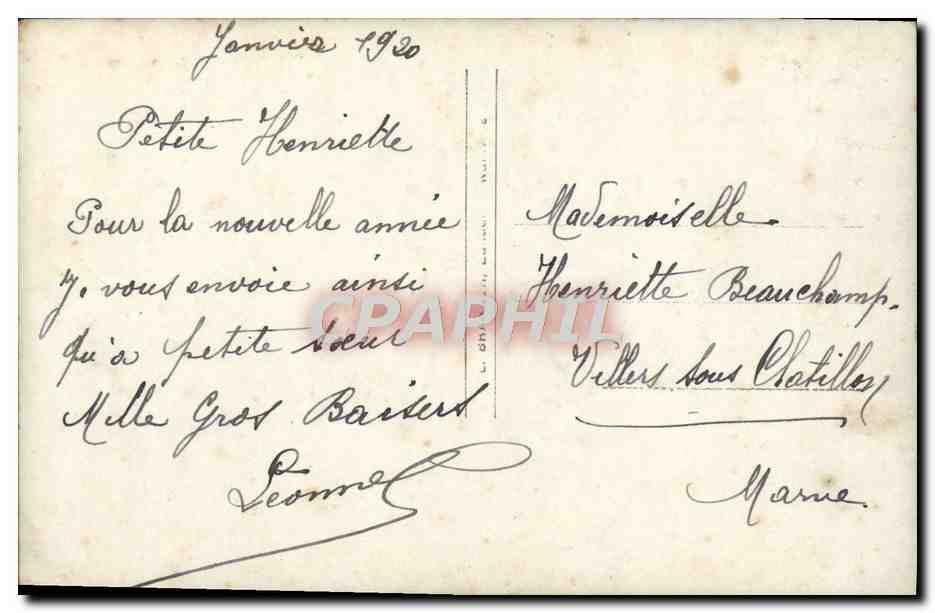 Janvier 1920
Petite Henriette
Pour la nouvelle année
J. vous envoie ainsi
qu'a petite sœur
Mille Gros Baisers
Léonnel
Mademoiselle
Henriette Beauchamp.
Villers sous Chatillon
Marne
CPAPHIL